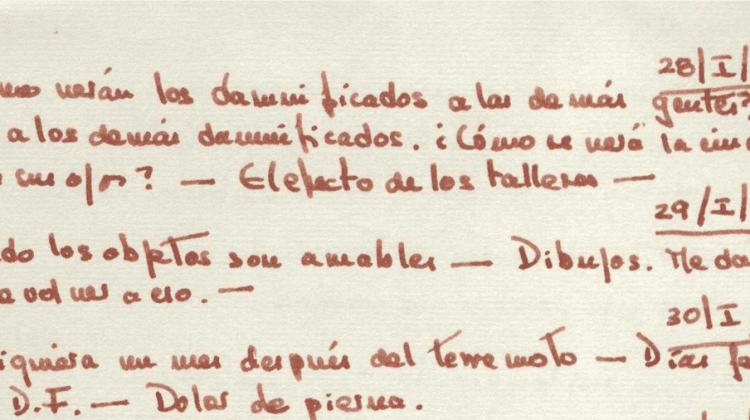 28/I/
verán los damnificados a las demás gentes
a los demás damnificados. ¿Cómo se verá la
sus ojos? — El efecto de los talleres —
29/I/
do los objetos son amables — Dibujos. Me da
a volver a eso. —
30/I
iquiera un mes después del terremoto — Días
D.F. — Dolor de pierna.